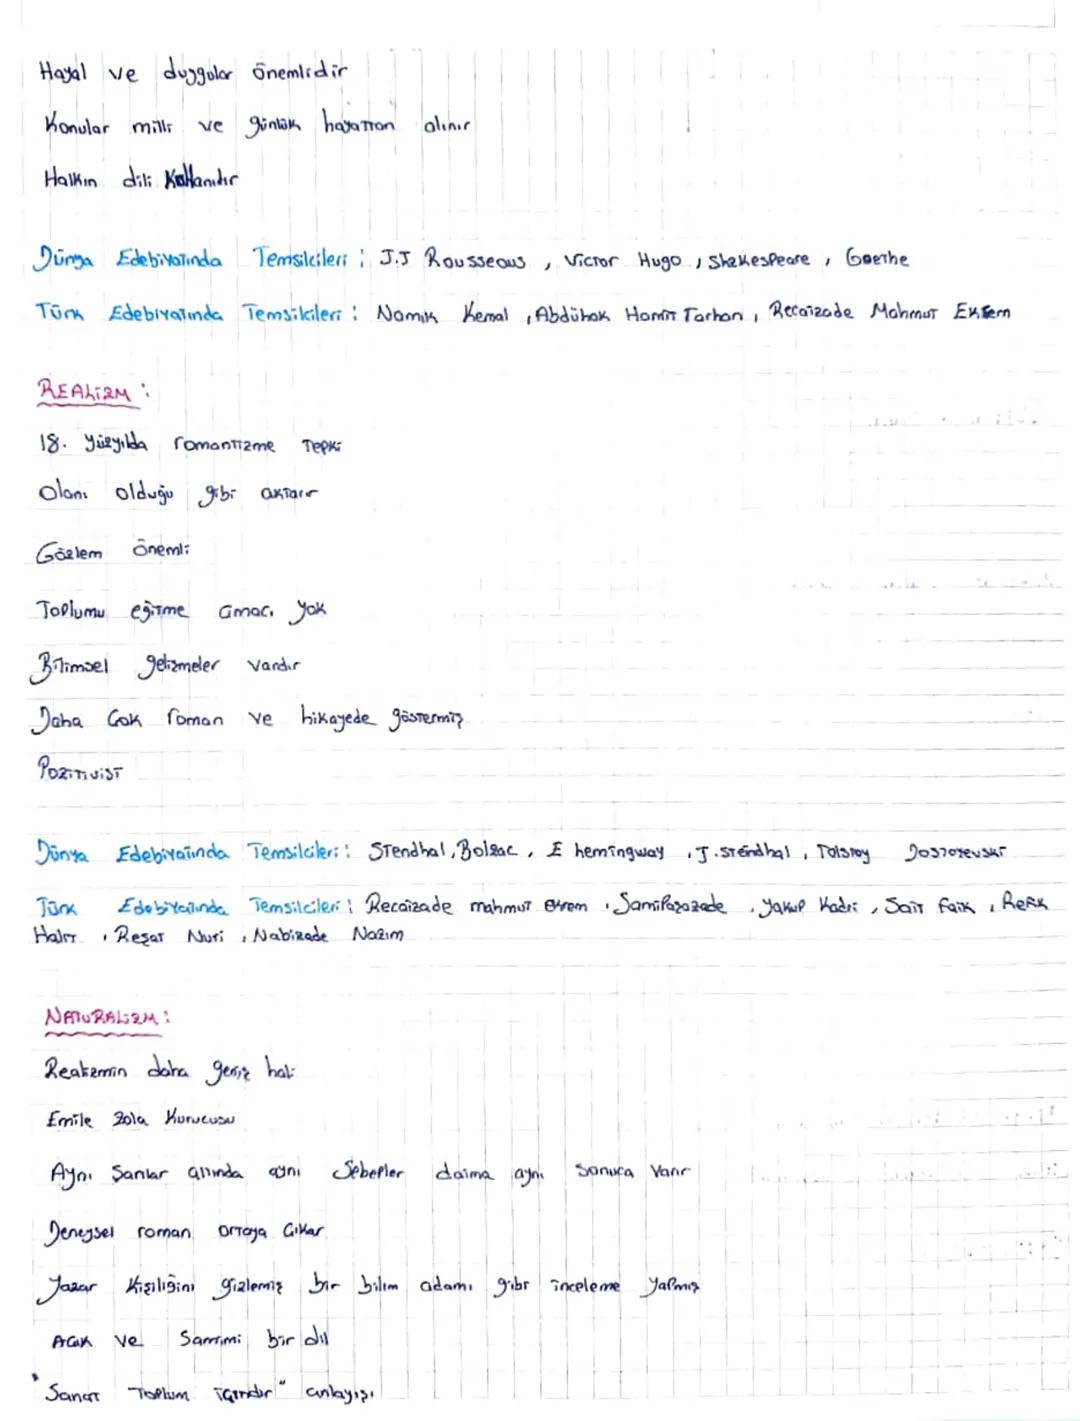 Hayal ve duygular önemlidir
Konular milli ve günlük hayattan alınır
Halkın dili Kullanılır
Dünya Edebiyatında Temsilcileri : J.J Rousseous , Victor Hugo , Shakespeare , Goethe
Türk Edebiyatında Temsilcileri : Namık Kemal , Abdühak Hamit Tarhan , Recaizade Mahmut Ekrem
REALİZM :
18. yüzyılda romantizme Tepki
Olanı olduğu gibi aktarır
Gözlem önemli
Toplumu eğitme amacı yok
Bilimsel gelişmeler vardır
Daha Çok roman ve hikayede göstermiş
Pozitivist
Dünya Edebiyatında Temsilcileri : Stendhal , Balzac , E hemingway , J. stendhal , Tolstoy Dostoyevski
Türk Edebiyatında Temsilcileri : Recaizade mahmut ekrem , Samipaşazade , Yakup Kadri , Sait faik , Refik
Halit , Reşat Nuri , Nabizade Nazım
NATURALİZM :
Realizmin daha geniş hali
Emile Zola Kurucusu
Aynı Şartlar altında aynı Sebepler daima aynı Sonuca Varır
Deneysel roman Ortaya Çıkar
Yazar Kişiliğini gizlemiş bir bilim adamı gibi inceleme Yapmış
Açık ve Samimi bir dil
"Sanat Toplum içindir" anlayışı